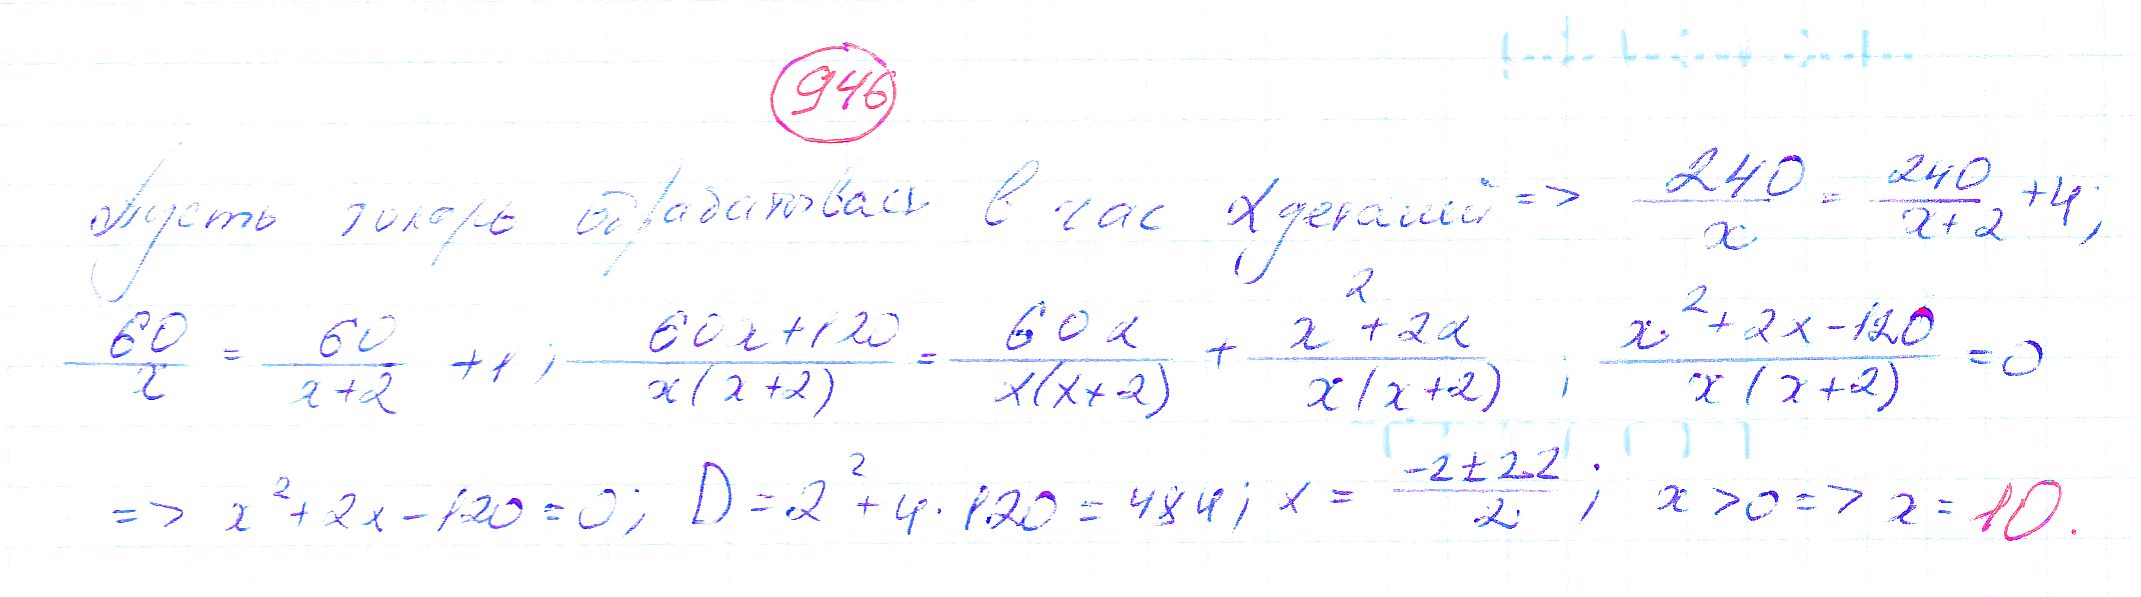 946
Пусть токарь обрабатывал в час x деталей => 240/x = 240/(x+2) + 4;
60/x = 60/(x+2) + 1; (60x+120)/(x(x+2)) = 60x/(x(x+2)) + (x²+2x)/(x(x+2)); (x²+2x-120)/(x(x+2)) = 0
=> x²+2x-120=0; D=2²+4·120=484; x = (-2±22)/2; x>0 => x=10.